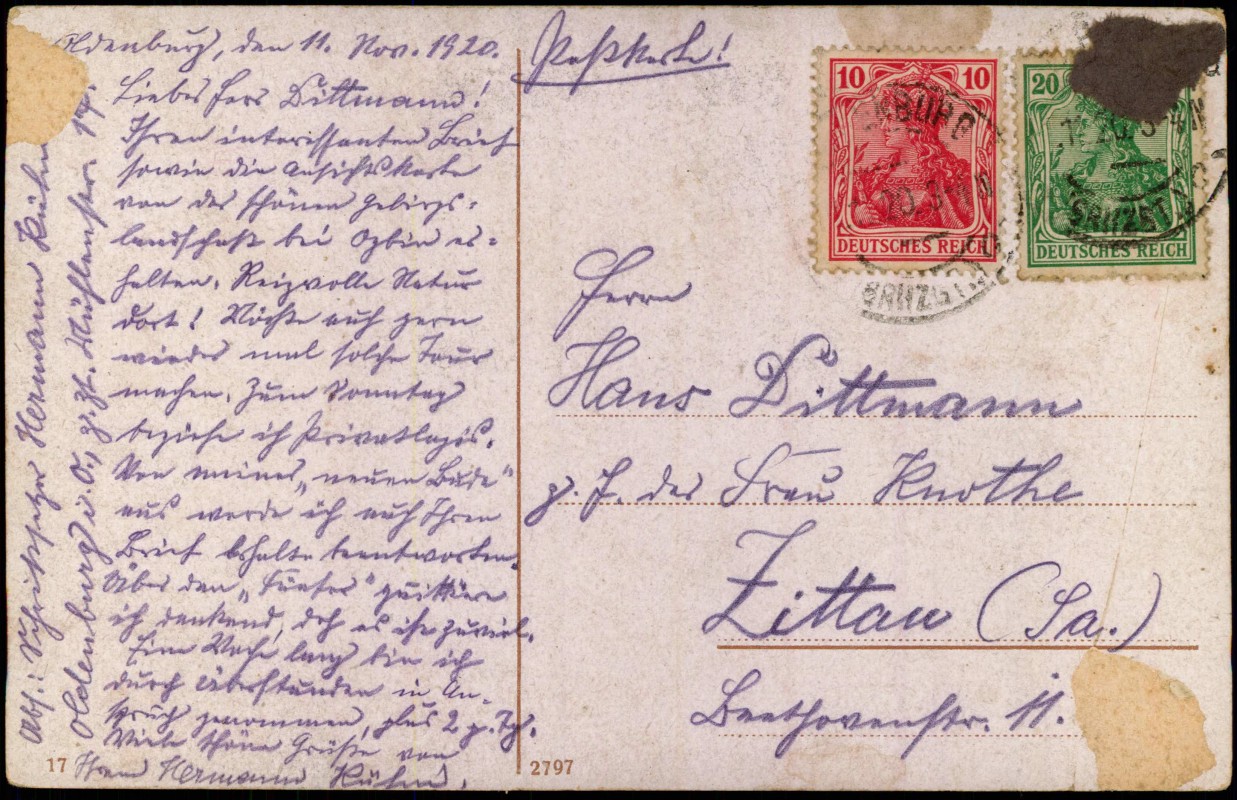 Oldenburg, den 11. Nov. 1920.
Lieber Herr Dittmann!
Ihren interessanten Brief
sowie die Ansichtskarte
von der schönen Gebirgs-
landschaft bei Oybin er-
halten. Reizvolle Natur
dort! Möchte auch gern
wieder mal solche Tour
machen. Zum Sonntag
beziehe ich Privatlogis.
Von meiner „neuen Bude"
aus werde ich auch Ihren
Brief beantworten.
Über den „Fünfer" quittiere
ich dankend, doch es ist zuviel.
Eine Woche lang bin ich
durch Überstunden in An-
spruch genommen, plus 2 p. Tg.
Viele schöne Grüße von
Ihrem Hermann Kühn.
Abs.: Schriftsetzer Hermann Kühn
Oldenburg i. O., z. Zt. Mühlenstr. 17.
Postkarte!
10 10
DEUTSCHES REICH
20
DEUTSCHES REICH
Herrn
Hans Dittmann
p. A. der Frau Knothe
Zittau (Sa.)
Beethovenstr. 11.
17
2797